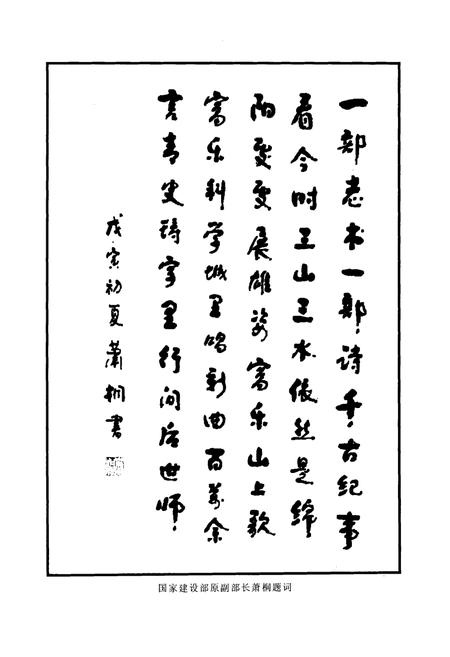 一部志书一部诗千古纪事
看今时三山三水依然是绵
阳更变展雄姿富乐山上歌
富乐科学城里唱新曲百万余
言青史铸字里行间后世师
戊寅初夏萧桐书
国家建设部原副部长萧桐题词